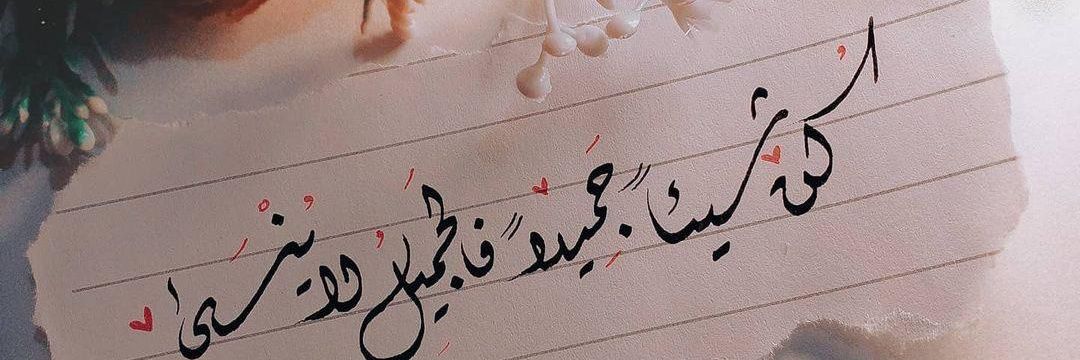 كن شيئاً جميلاً فالجميل لا ينسى